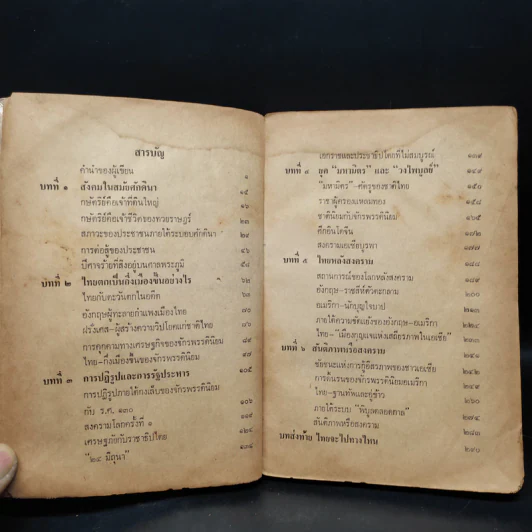 สารบัญ
คำนำของผู้เขียน ๑
บทที่ ๑ สังคมในสมัยศักดินา ๑๕
กษัตริย์คือเจ้าที่ดินใหญ่ ๑๖
กษัตริย์คือเจ้าชีวิตของทวยราษฎร์ ๒๓
สภาวะของประชาชนภายใต้ระบอบศักดินา ๒๔
การต่อสู้ของประชาชน ๔๘
ปีศาจร้ายที่สิงอยู่บนศาลพระภูมิ ๕๘
บทที่ ๒ ไทยตกเป็นกึ่งเมืองขึ้นอย่างไร ๖๒
ไทยกับตะวันตกในอดีต ๖๘
อังกฤษผู้ทะลายกำแพงเมืองไทย
ฝรั่งเศส-ผู้สร้างความวิปโยคแก่ชาติไทย
การคุกคามทางเศรษฐกิจของจักรพรรดินิยม
ไทย-กึ่งเมืองขึ้นของจักรพรรดินิยม
บทที่ ๓ การปฏิรูปและการรัฐประหาร ๑๐๕
การปฏิรูปภายใต้กงเล็บของจักรพรรดินิยม ๑๐๖
กับ ร.ศ. ๑๓๐
สงครามโลกครั้งที่ ๑
เศรษฐภัยกับราชาธิปไตย
"๒๔ มิถุนา"
เอกราชและประชาธิปไตยที่ไม่สมบูรณ์ ๑๓๙
ยุค "มหามิตร" และ "วงไพบูลย์" ๑๔๙
"มหามิตร" -ศัตรูของชาติไทย ๑๕๐
ราชาผู้ครองแหลมทอง
ชาตินิยมกับจักรพรรดินิยม ๑๖๕
ศึกอินโดจีน ๑๗๒
สงครามเอเซียบูรพา ๑๗๗
บทที่ ๕ ไทยหลังสงคราม
สถานการณ์ของโลกหลังสงคราม
อังกฤษ-ราชสีห์ตัวตะกลาม ๒๐๐
อเมริกา-นักบุญใจบาป
ภายใต้ความขัดแย้งของอังกฤษ-อเมริกา
ไทย-"เมืองกุญแจแห่งเสถียรภาพในเอเซีย"
บทที่ ๖ สันติภาพหรือสงคราม ๒๔๑
ชัยชนะแห่งการกู้อิสรภาพของชาวเอเซีย ๒๔๒
การดิ้นรนของจักรพรรดินิยมอเมริกา ๒๔๙
ไทย-ฐานทัพและคู่ข้าว ๒๖๐
ภายใต้ระบบ "พิบูลตลอดกาล" ๒๗๔
สันติภาพหรือสงคราม ๒๘๓
บทส่งท้าย ไทยจะไปทางไหน ๒๙๐